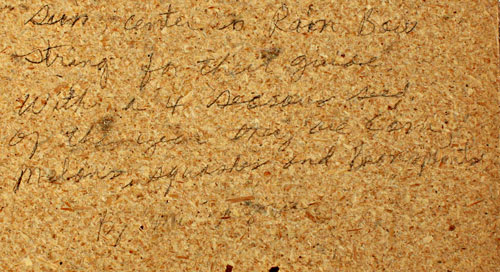 Sun center in Rain Bow
String for their guide
With a 4 Seasons seed
of the year they are Corn,
Melons, squashes and
By Mr.